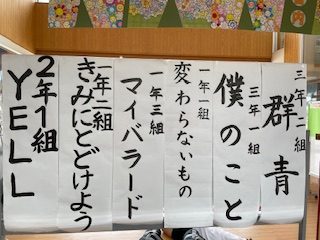 三年二組
群青
三年一組
僕のこと
一年一組
変わらないもの
一年三組
マイバラード
一年二組
きみにとどけよう
2年1組
YELL